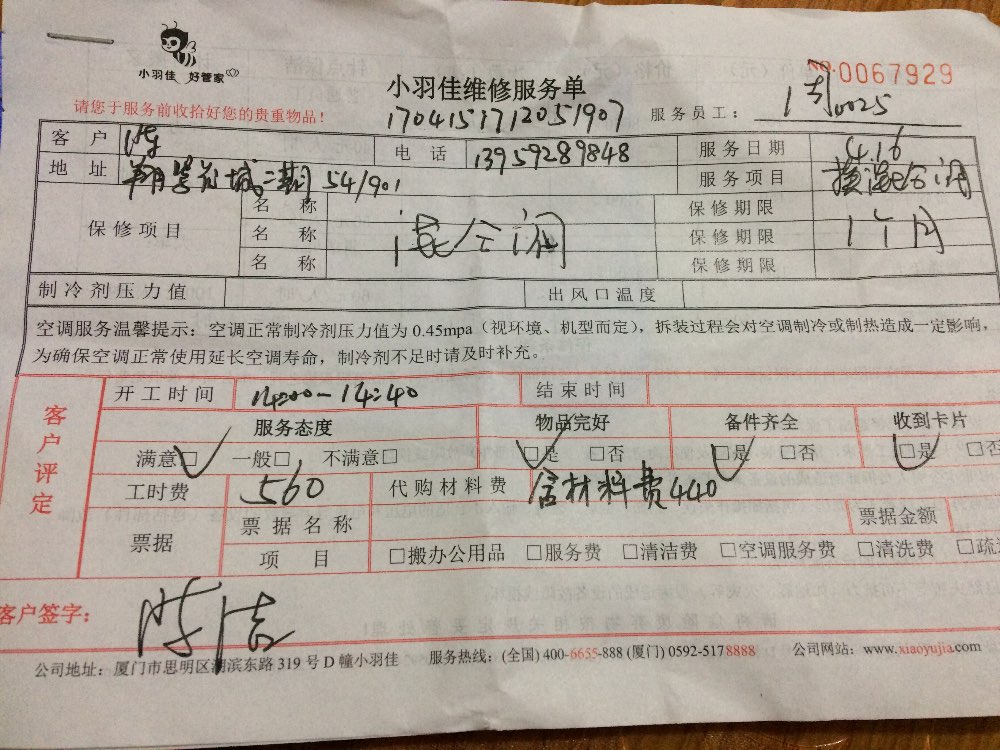 小羽佳 好管家
小羽佳维修服务单
NO.0067929
请您于服务前收拾好您的贵重物品!
1704151712051907
服务员工: 0025
客户 陈 电话 13959289848 服务日期 4.16
地址 翔鹭花城二期 54/901 服务项目 换混合阀
保修项目 名称 混合阀 保修期限 1个月
名称 保修期限
名称 保修期限
制冷剂压力值 出风口温度
空调服务温馨提示:空调正常制冷剂压力值为0.45mpa(视环境、机型而定),拆装过程会对空调制冷或制热造成一定影响,
为确保空调正常使用延长空调寿命,制冷剂不足时请及时补充。
客户评定
开工时间 14:00-14:40 结束时间
服务态度 物品完好 备件齐全 收到卡片
满意□ 一般□ 不满意□ □是 □否 □是 □否 □是 □否
工时费 560 代购材料费 含材料费440
票据 票据名称 票据金额
项目 □搬办公用品 □服务费 □清洁费 □空调服务费 □清洗费
客户签字: 陈洁
公司地址:厦门市思明区湖滨东路319号D幢小羽佳 服务热线:(全国)400-6655-888 (厦门)0592-5178888 公司网站:www.xiaoyujia.com